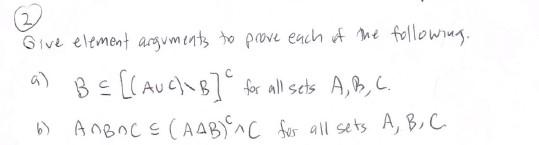 ②
Give element arguments to prove each of the following.
a) B ⊆ [(A∪C)\B]ᶜ for all sets A, B, C.
b) A∩B∩C ⊆ (AΔB)ᶜ∩C for all sets A, B, C.